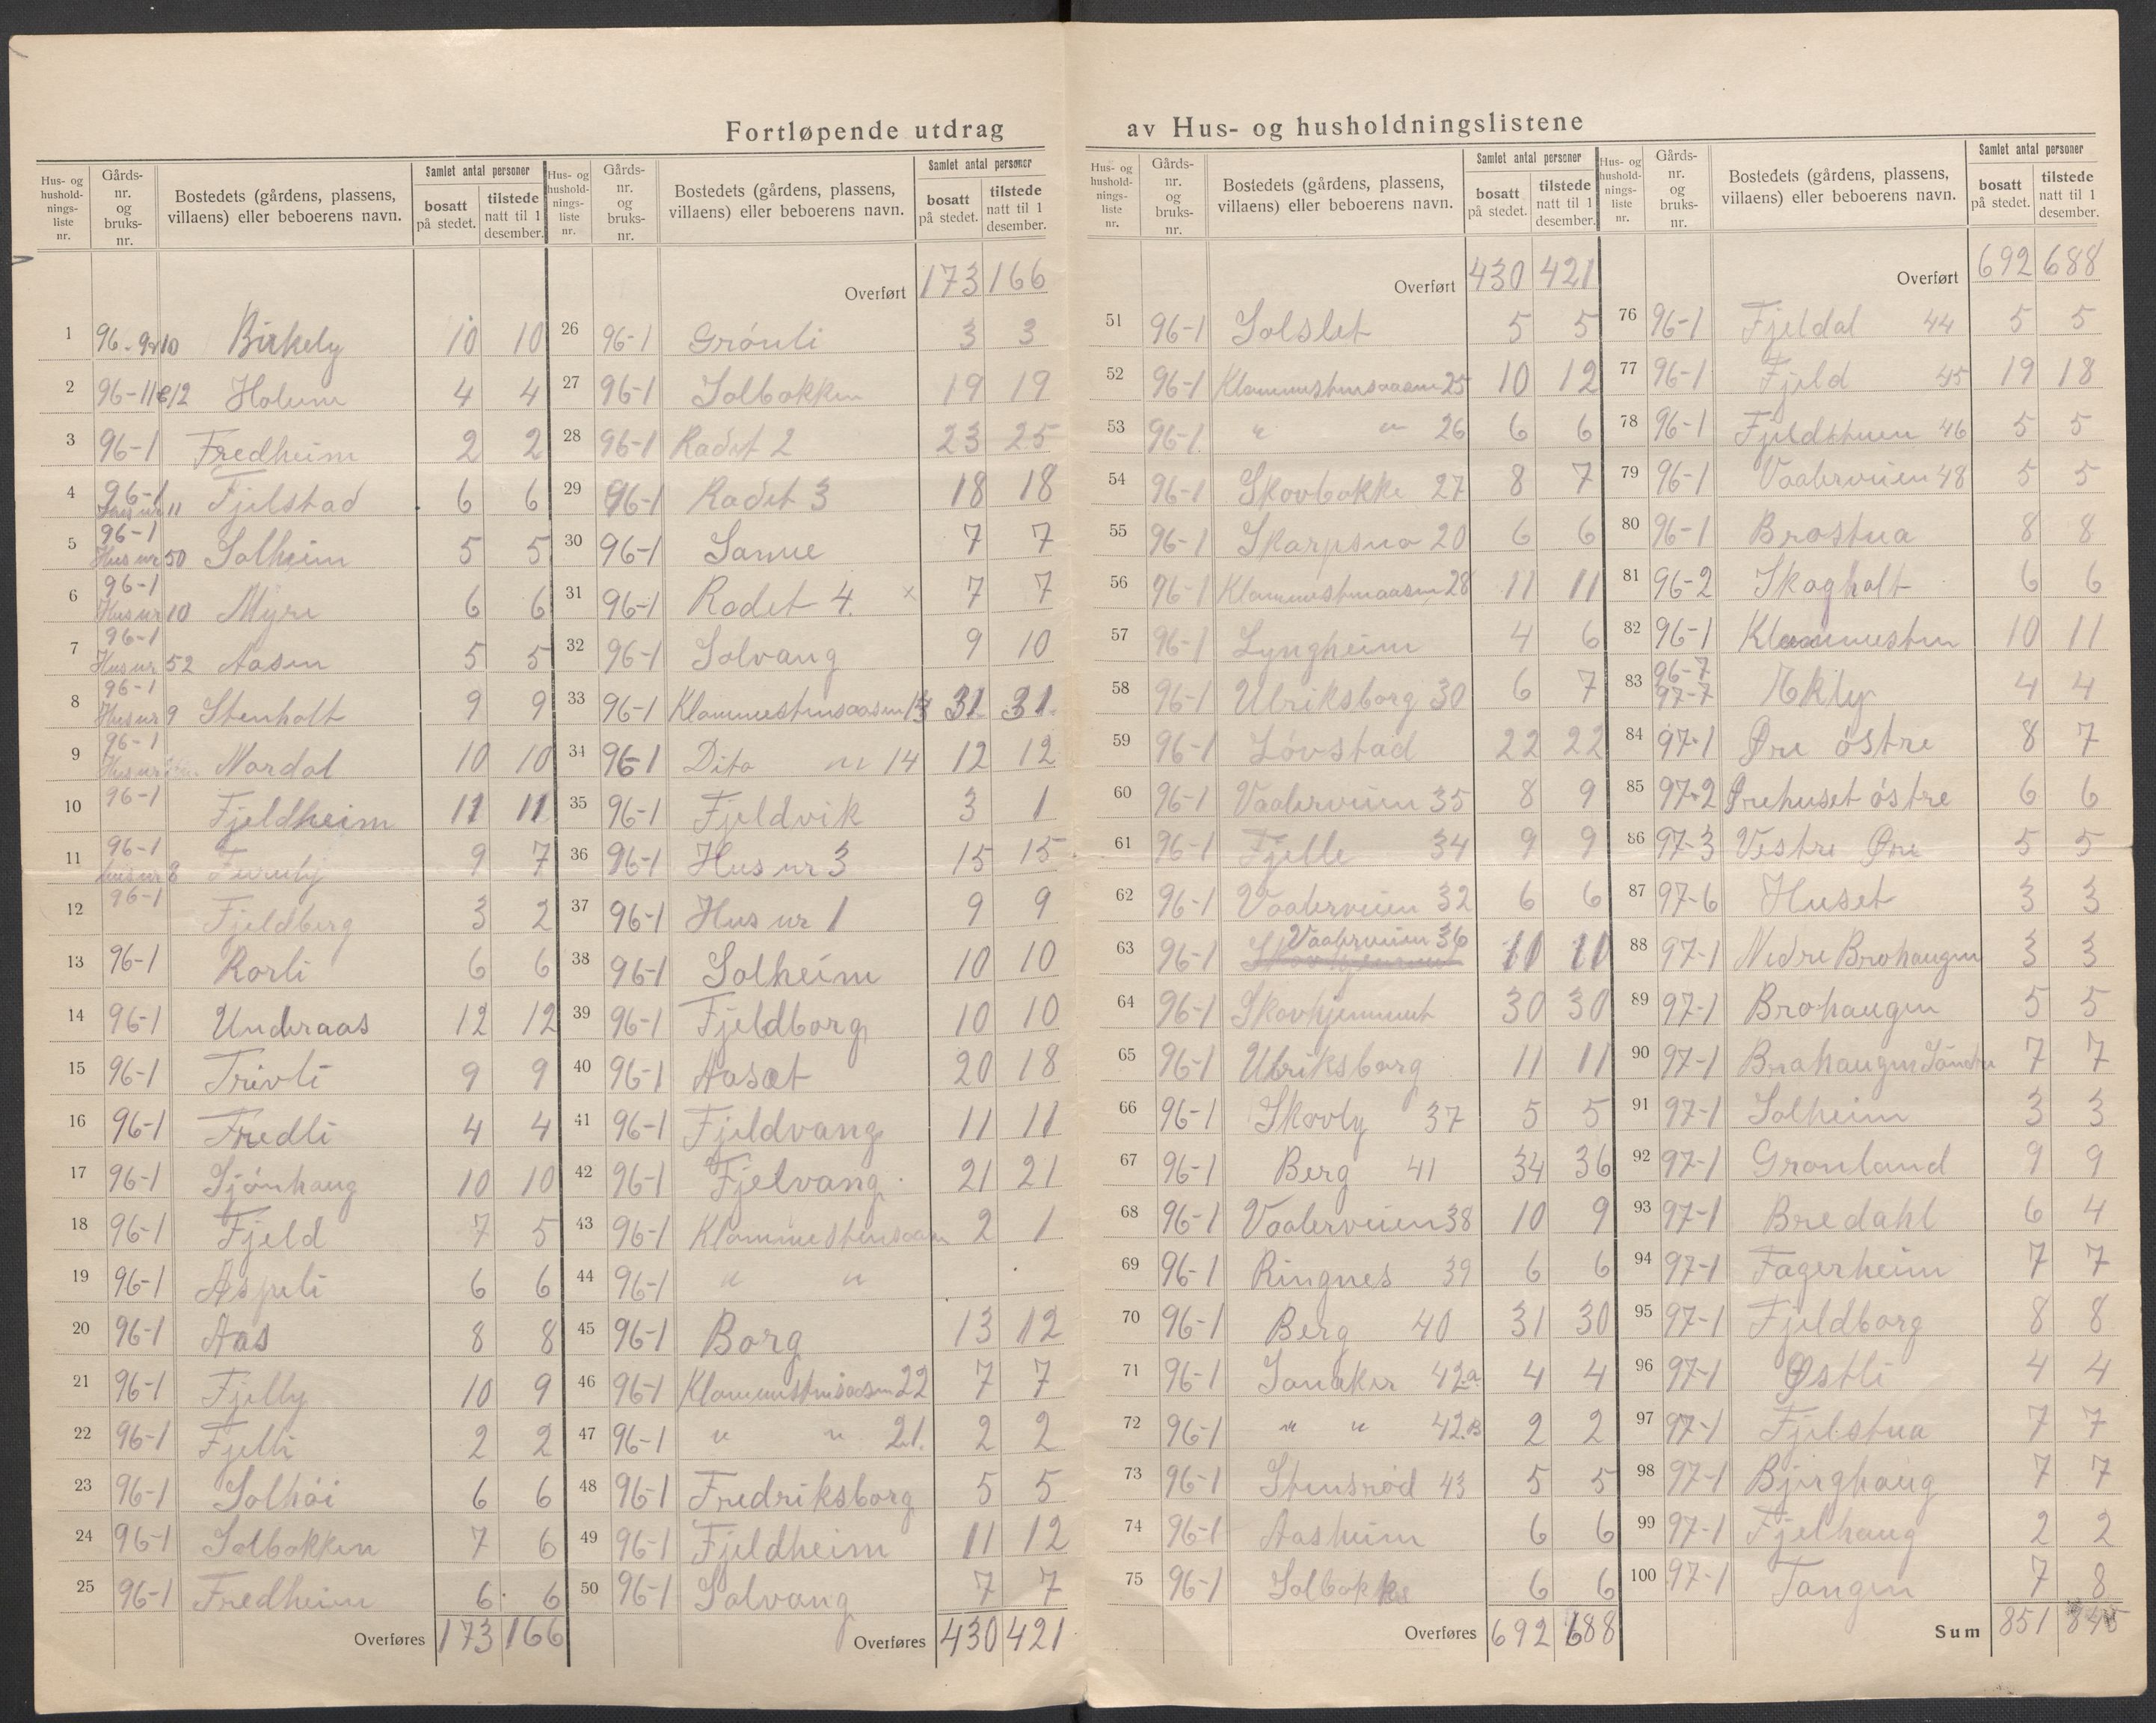 Fortløpende utdrag av Hus- og husholdningslistene
Hus- og hushold-nings-liste nr. Gårds-nr. og bruks-nr. Bostedets (gårdens, plassens, villaens) eller beboerens navn. Samlet antal personer bosatt på stedet. tilstede natt til 1 desember.
1 96-9&10 Birkely 10 10
2 96-11&12 Holum 4 4
3 96-1 Fredheim 2 2
4 96-1 Hus nr 11 Fjelstad 6 6
5 96-1 Hus nr 50 Solheim 5 5
6 96-1 Hus nr 10 Myre 6 6
7 96-1 Hus nr 52 Aasen 5 5
8 96-1 Hus nr 9 Stenholt 9 9
9 96-1 Hus nr Nordal 10 10
10 96-1 Fjeldheim 11 11
11 96-1 hus nr 8 Furuly 9 7
12 96-1 Fjeldberg 3 2
13 96-1 Rorli 6 6
14 96-1 Underaas 12 12
15 96-1 Trivli 9 9
16 96-1 Fredli 4 4
17 96-1 Sjönhaug 10 10
18 96-1 Fjeld 7 5
19 96-1 Aspeli 6 6
20 96-1 Aas 8 8
21 96-1 Fjelly 10 9
22 96-1 Fjelli 2 2
23 96-1 Solhöi 6 6
24 96-1 Solbakken 7 6
25 96-1 Fredheim 6 6
Overføres 173 166
Hus- og hushold-nings-liste nr. Gårds-nr. og bruks-nr. Bostedets (gårdens, plassens, villaens) eller beboerens navn. Samlet antal personer bosatt på stedet. tilstede natt til 1 desember.
Overført 173 166
26 96-1 Grönli 3 3
27 96-1 Solbakken 19 19
28 96-1 Radet 2 23 25
29 96-1 Radet 3 18 18
30 96-1 Sanne 7 7
31 96-1 Radet 4. x 7 7
32 96-1 Solvang 9 10
33 96-1 Klommestensaasen 13 31 31
34 96-1 Dito " 14 12 12
35 96-1 Fjeldvik 3 1
36 96-1 Hus nr 3 15 15
37 96-1 Hus nr 1 9 9
38 96-1 Solheim 10 10
39 96-1 Fjeldborg 10 10
40 96-1 Aaset 20 18
41 96-1 Fjeldvang 11 11
42 96-1 Fjelvang 21 21
43 96-1 Klommestensaasen 2 1
44 96-1 " "
45 96-1 Borg 13 12
46 96-1 Klommestensaasen 22 7 7
47 96-1 " " 21. 2 2
48 96-1 Fredriksborg 5 5
49 96-1 Fjeldheim 11 12
50 96-1 Solvang 7 7
Overføres 430 421
Hus- og hushold-nings-liste nr. Gårds-nr. og bruks-nr. Bostedets (gårdens, plassens, villaens) eller beboerens navn. Samlet antal personer bosatt på stedet. tilstede natt til 1 desember.
Overført 430 421
51 96-1 Solslet 5 5
52 96-1 Klommestensaasen 25 10 12
53 96-1 " " 26 6 6
54 96-1 Skovbakke 27 8 7
55 96-1 Skarpsno 20 6 6
56 96-1 Klommestenaasen 28 11 11
57 96-1 Lyngheim 4 6
58 96-1 Ulriksborg 30 6 7
59 96-1 Lövstad 22 22
60 96-1 Vaalerveien 35 8 9
61 96-1 Fjelle 34 9 9
62 96-1 Vaalerveien 32 6 6
63 96-1 Vaalerveien 36 11 11
64 96-1 Skovhjemmet 30 30
65 96-1 Ulriksborg 11 11
66 96-1 Skovly 37 5 5
67 96-1 Berg 41 34 36
68 96-1 Vaalerveien 38 10 9
69 96-1 Ringnes 39 6 6
70 96-1 Berg 40 31 30
71 96-1 Sonaker 42.a. 4 4
72 96-1 " " 42.B 2 2
73 96-1 Stensröd 43 5 5
74 96-1 Aasheim 6 6
75 96-1 Solbakke 6 6
Overføres 692 688
Hus- og hushold-nings-liste nr. Gårds-nr. og bruks-nr. Bostedets (gårdens, plassens, villaens) eller beboerens navn. Samlet antal personer bosatt på stedet. tilstede natt til 1 desember.
Overført 692 688
76 96-1 Fjeldal 44 5 5
77 96-1 Fjeld 45 19 18
78 96-1 Fjeldstuen 46 5 5
79 96-1 Vaalerveien 48 5 5
80 96-1 Brostua 8 8
81 96-2 Skogholt 6 6
82 96-1 Klommesten 10 11
83 96-7 97-7 Ekly 4 4
84 97-1 Øre östre 8 7
85 97-2 Ørehuset östre 6 6
86 97-3 Vestre Øre 5 5
87 97-6 Huset 3 3
88 97-1 Nedre Brohaugen 3 3
89 97-1 Brohaugen 5 5
90 97-1 Brohaugen Söndre 7 7
91 97-1 Solheim 3 3
92 97-1 Gronland 9 9
93 97-1 Bredahl 6 4
94 97-1 Fagerheim 7 7
95 97-1 Fjeldborg 8 8
96 97-1 Østli 4 4
97 97-1 Fjelstua 7 7
98 97-1 Bjerghaug 7 7
99 97-1 Fjelhaug 2 2
100 97-1 Tangen 7 8
Sum 851 845